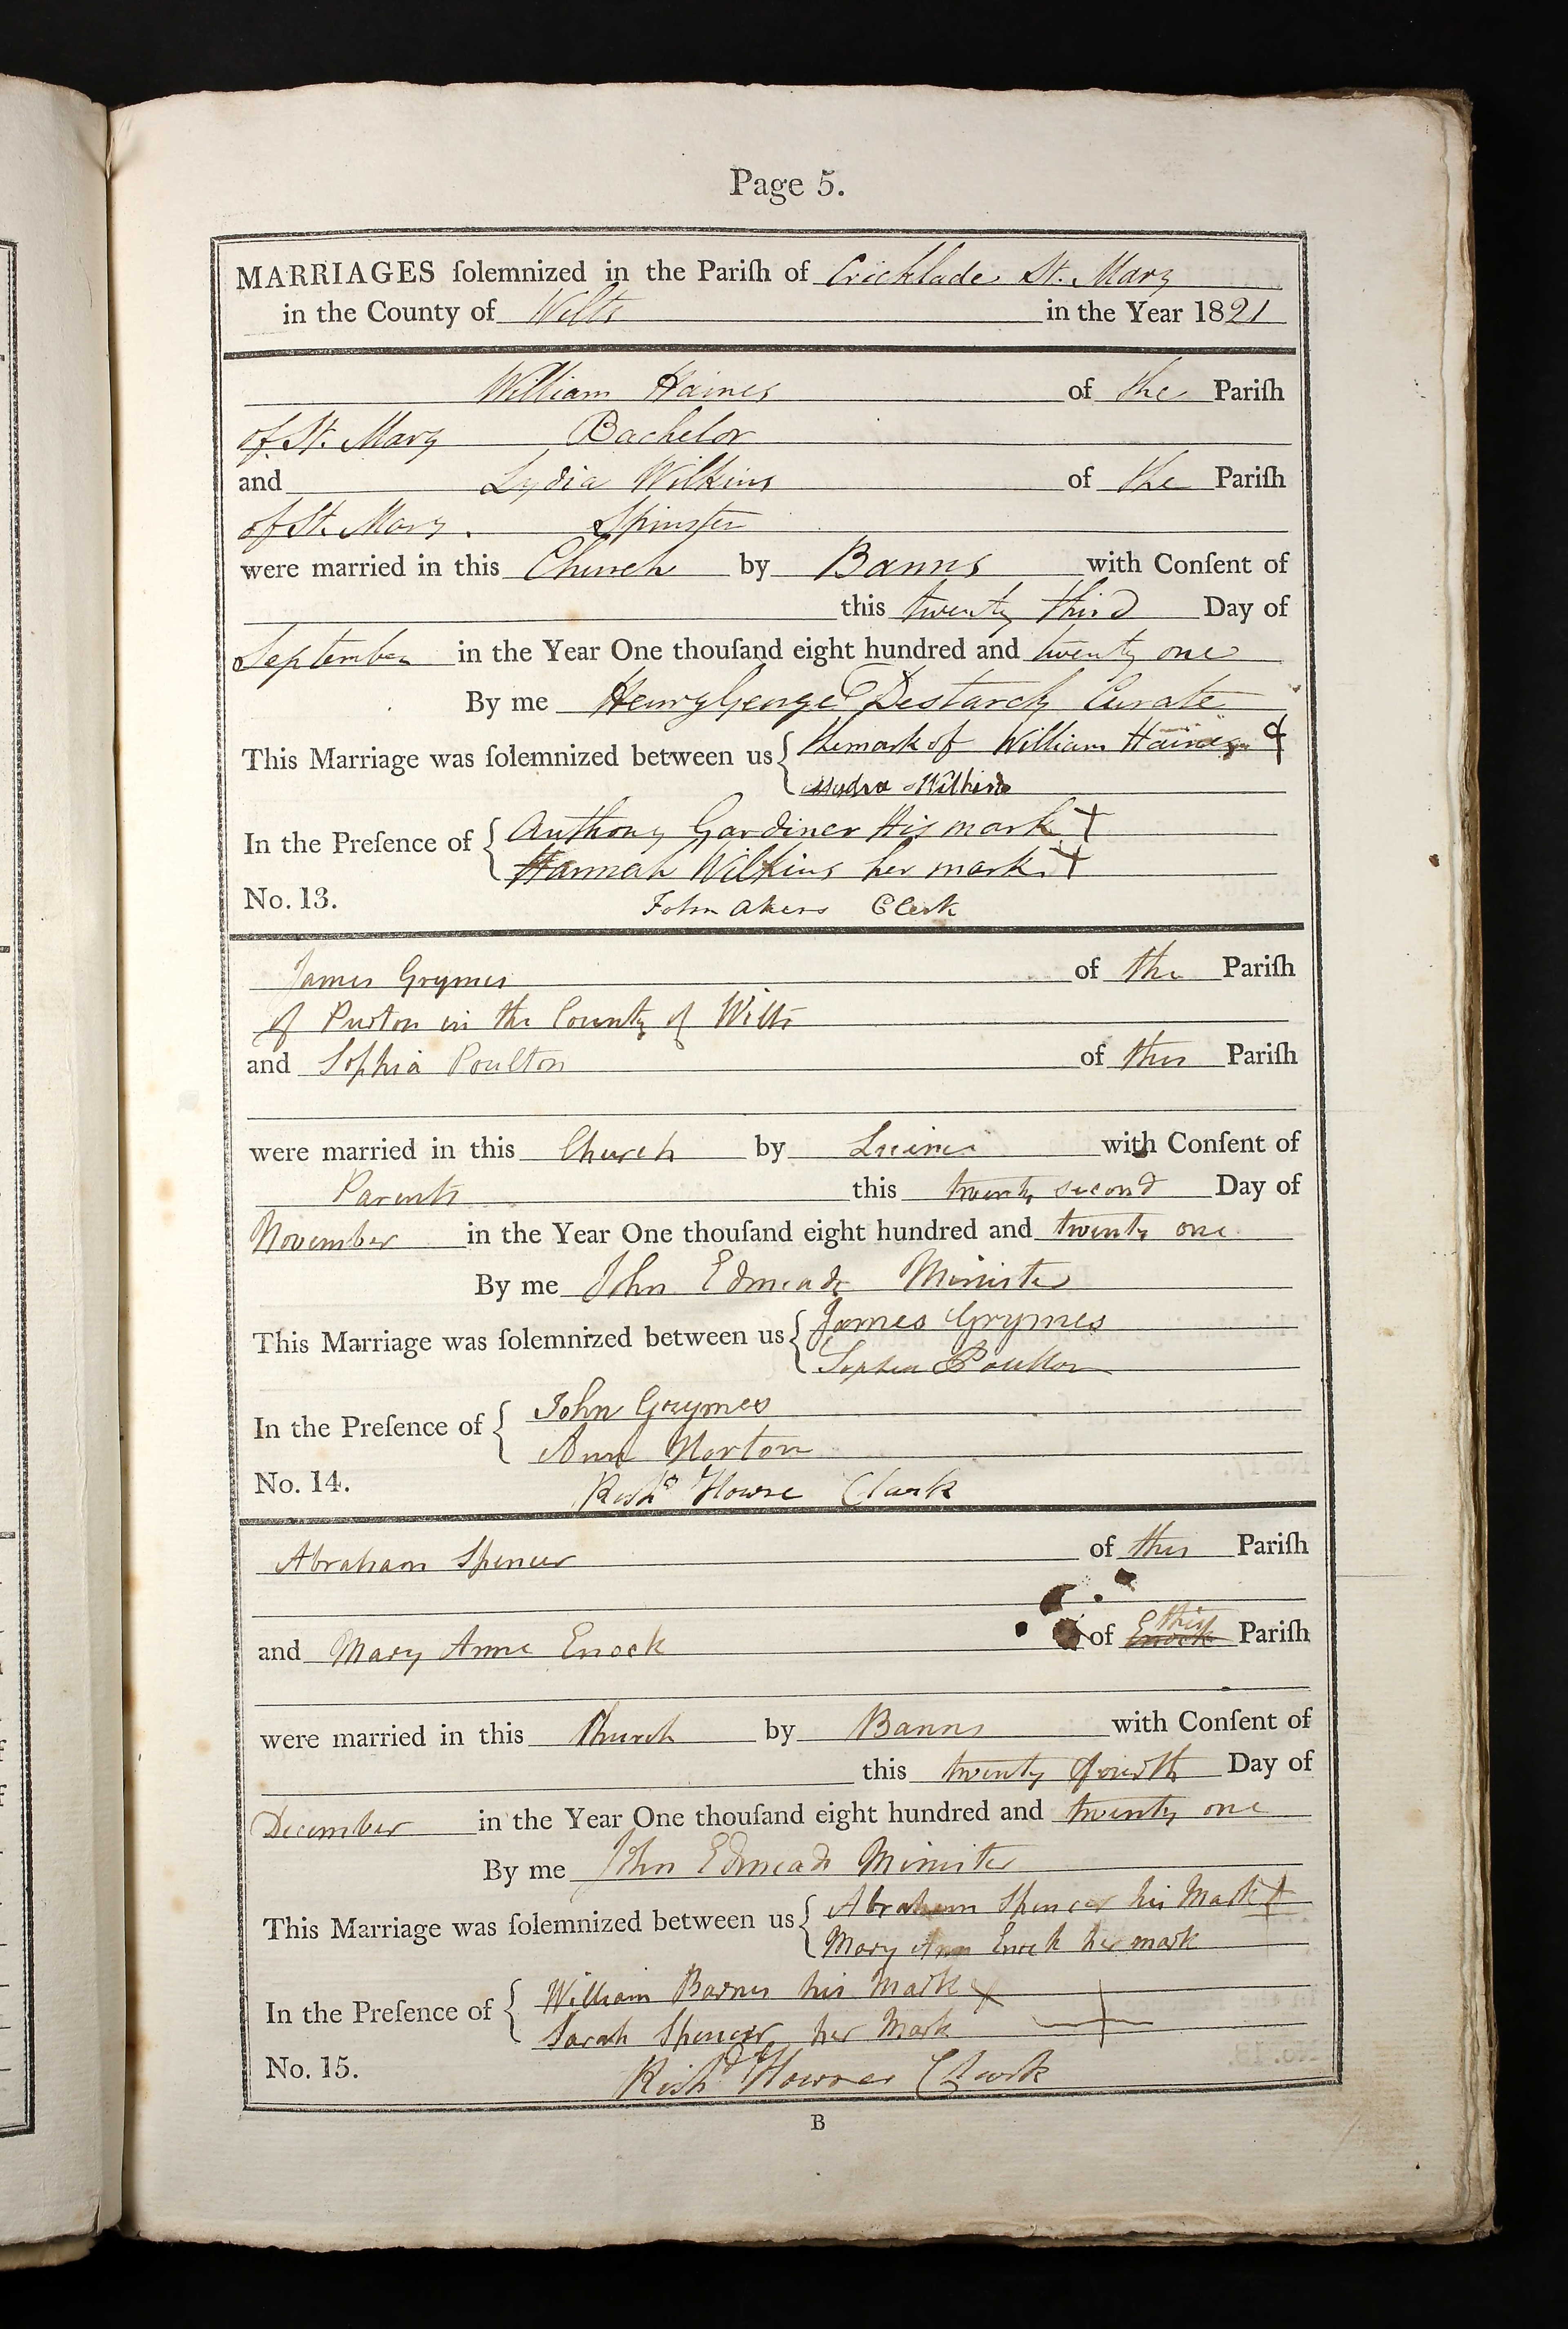 Page 5.
MARRIAGES ſolemnized in the Pariſh of Cricklade St. Mary
in the County of Wilts in the Year 1821
William Haines of the Pariſh
of St. Mary Bachelor
and Lydia Wilkins of the Pariſh
of St. Mary. Spinster
were married in this Church by Banns with Conſent of
this twenty third Day of
September in the Year One thouſand eight hundred and twenty one
By me Henry George Curate
This Marriage was ſolemnized between us { the mark of William Haines
Lydia Wilkins
In the Preſence of { Anthony Gardiner His mark +
Hannah Wilkins her mark. +
No. 13. John Akers Clerk
James Grymes of the Pariſh
of Purton in the County of Wilts
and Sophia Poulton of this Pariſh
were married in this Church by with Conſent of
Parents this twenty second Day of
November in the Year One thouſand eight hundred and twenty one
By me John Edmeads Minister
This Marriage was ſolemnized between us { James Grymes
Sophia Poulton
In the Preſence of { John Grymes
Ann Norton
No. 14. Richd Howse Clark
Abraham Spencer of this Pariſh
this
and Mary Anne Enock of Enock Pariſh
were married in this Church by Banns with Conſent of
this twenty fourth Day of
December in the Year One thouſand eight hundred and twenty one
By me John Edmeads Minister
This Marriage was ſolemnized between us { Abraham Spencer his Mark +
Mary Ann Enock her mark
In the Preſence of { William Barnes his Mark X
Sarah Spencer her Mark +
No. 15. Richd Clark
B